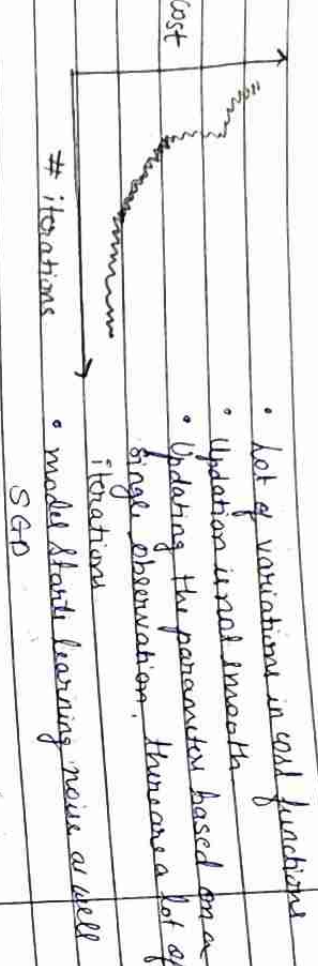 cost
# iterations
• Lot of variations in cost functions
• Updation is not smooth.
• Updating the parameters based on a
single observation, there are a lot of
iterations
• model starts learning noise as well
SGD